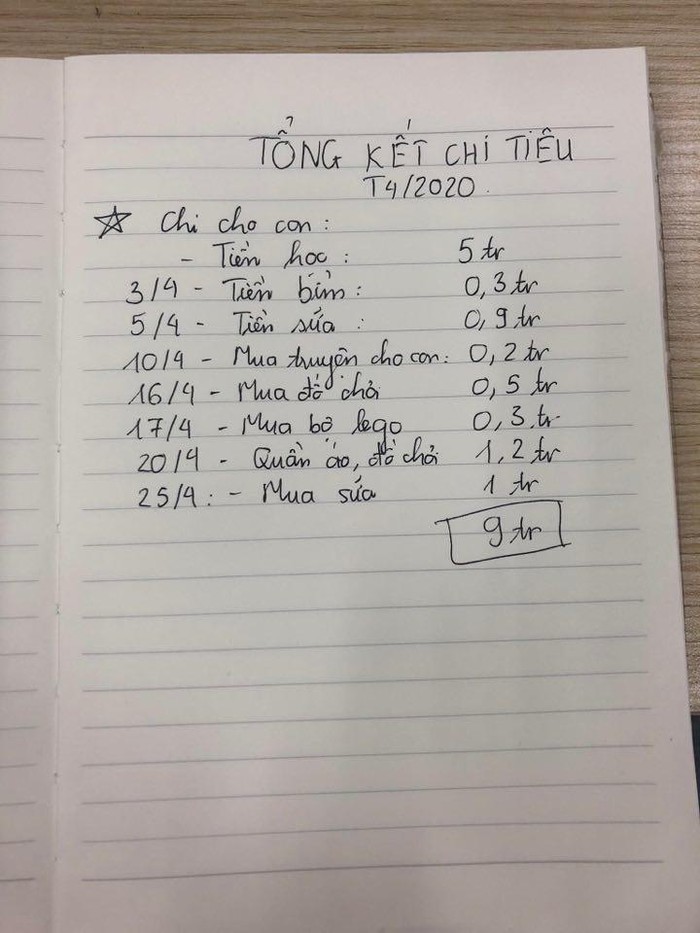 TỔNG KẾT CHI TIÊU
T4/2020.
☆ Chi cho con:
- Tiền học: 5 tr
3/4 - Tiền bỉm: 0,3 tr
5/4 - Tiền sữa: 0,9 tr
10/4 - Mua truyện cho con: 0,2 tr
16/4 - Mua đồ chơi 0,5 tr
17/4 - Mua bộ lego 0,3 tr
20/4 - Quần áo, đồ chơi 1,2 tr
25/4: - Mua sữa 1 tr
9 tr